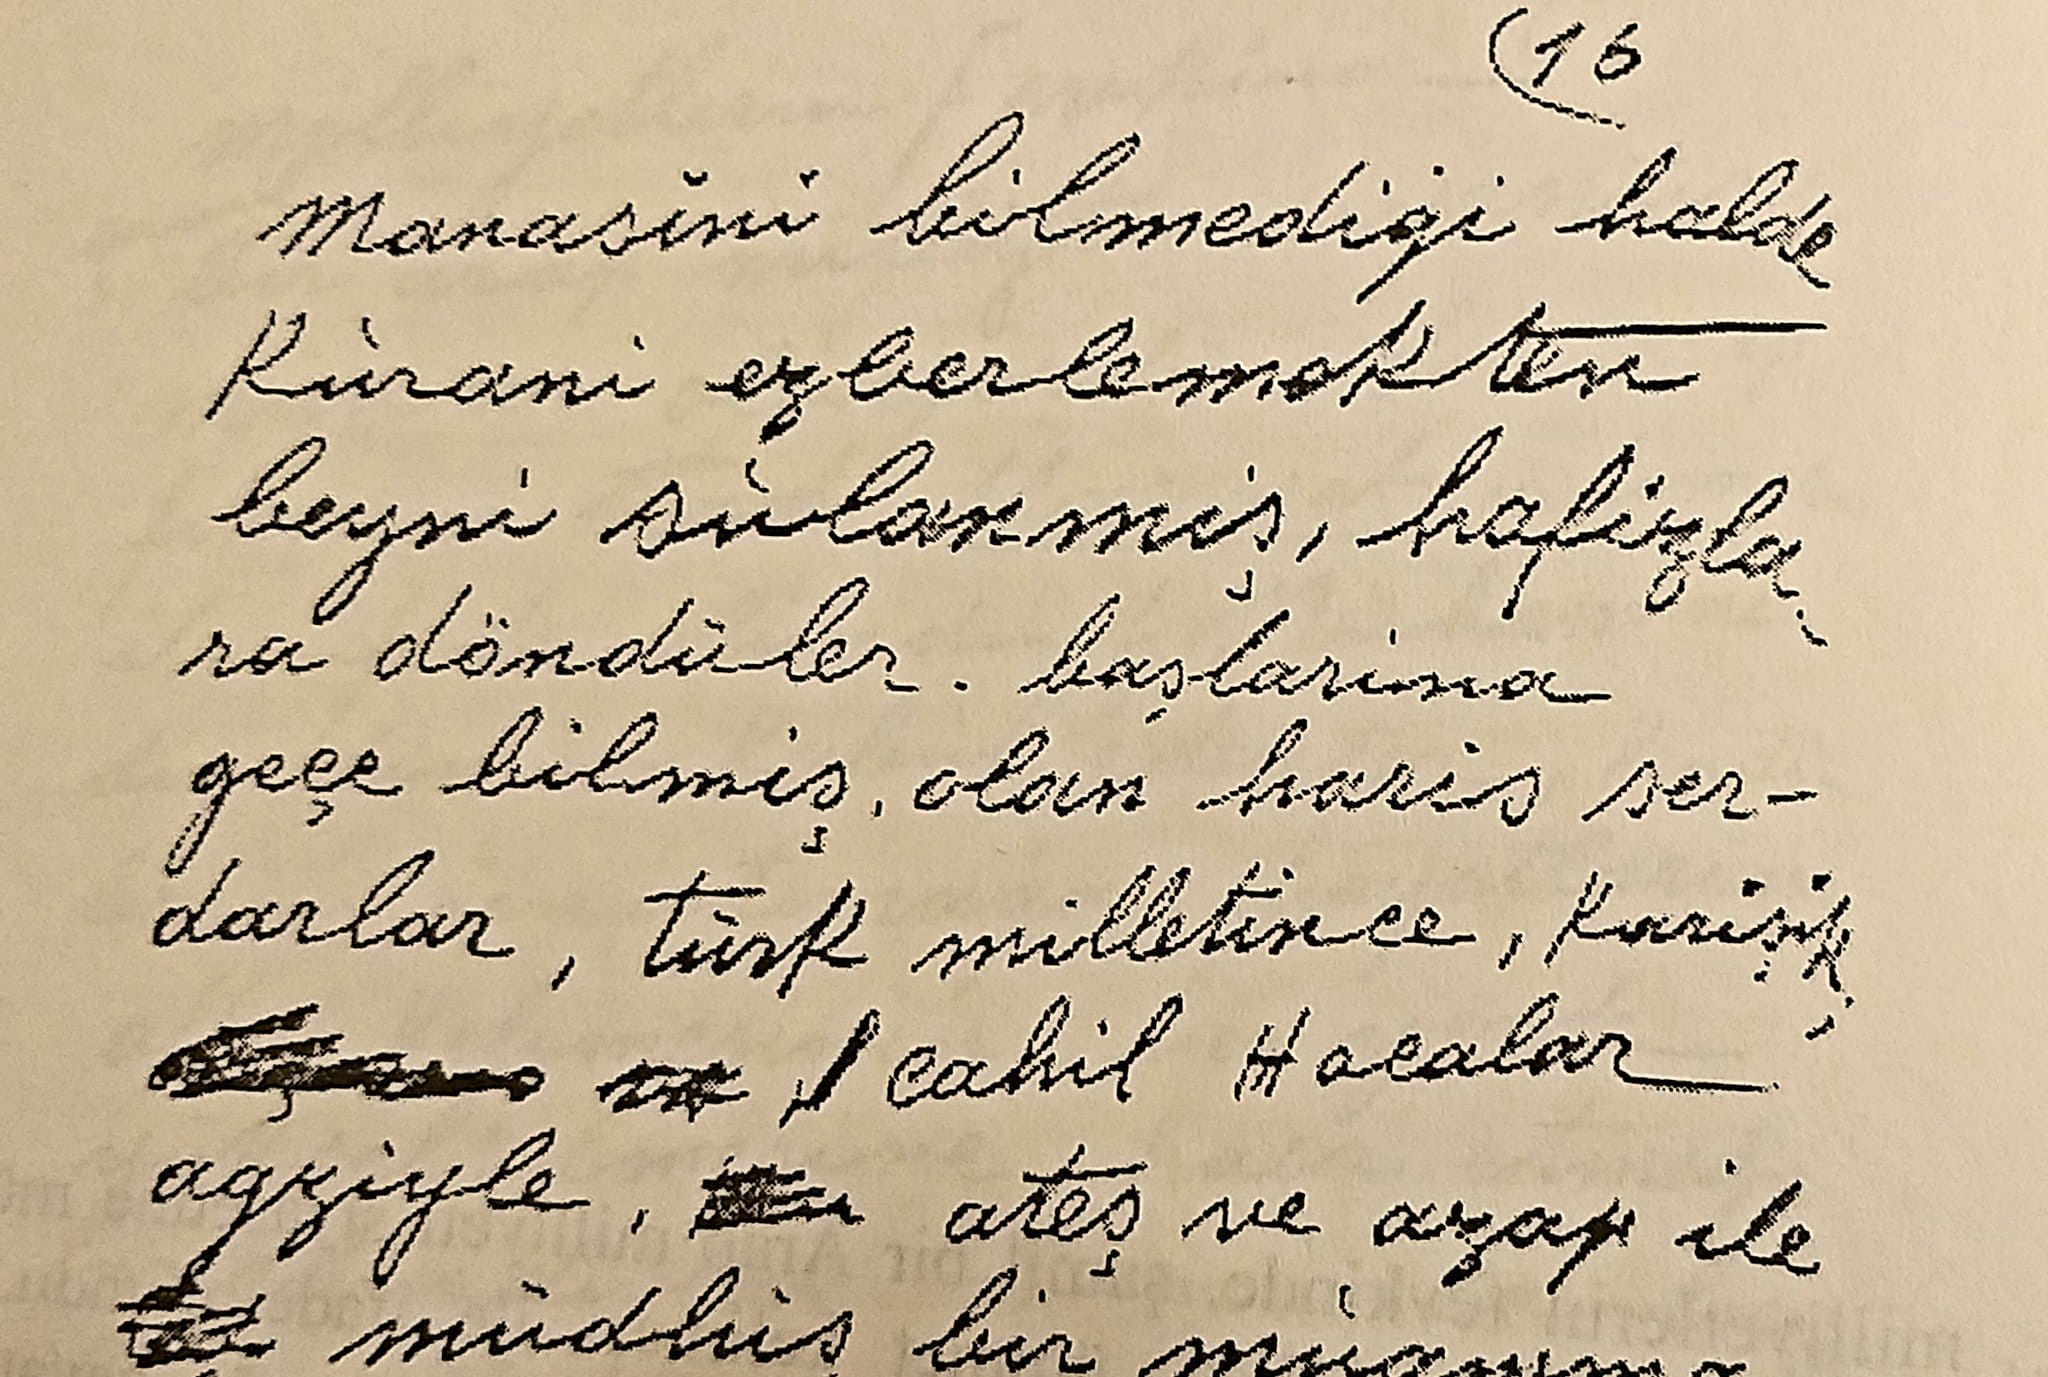 (16
Manasini bilmedigi halde
Kùrani ezberlemekten
beyni sùlanmiş, hafizla-
ra döndüler. başlarina
geçe bilmiş, olan haris ser-
darlar, türk milletince, karişik,
cahil Hocalar
agziyle, ateş ve azap ile
müdhiş bir muamma